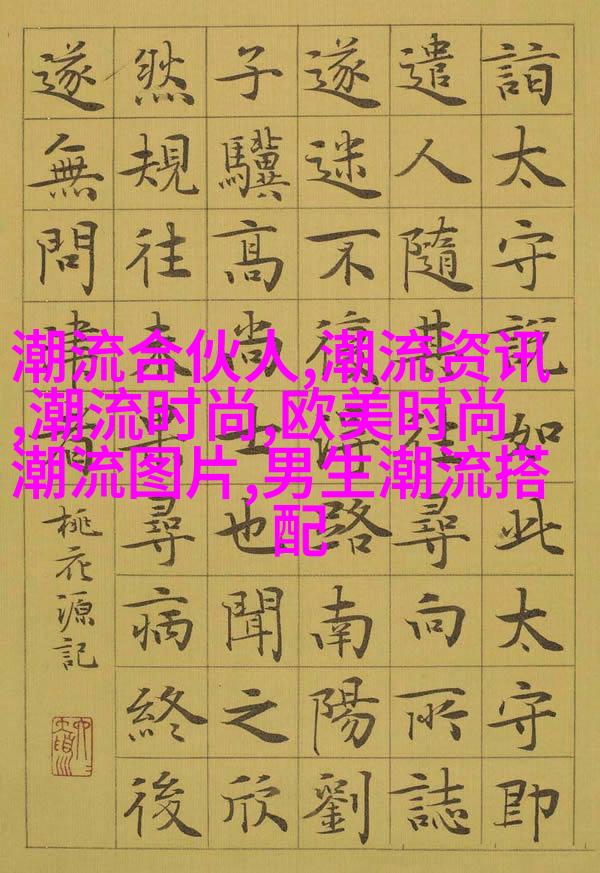 潮流合伙人,潮流资讯
,潮流时尚,欧美时尚
潮流图片,男生潮流搭
配
詣太守說如此太守即
遣人隨其往尋向所誌
遂迷不復得路南陽劉
子驥高尚士也聞之欣
然規往未果尋病終後
遂無問津者
桃花源記